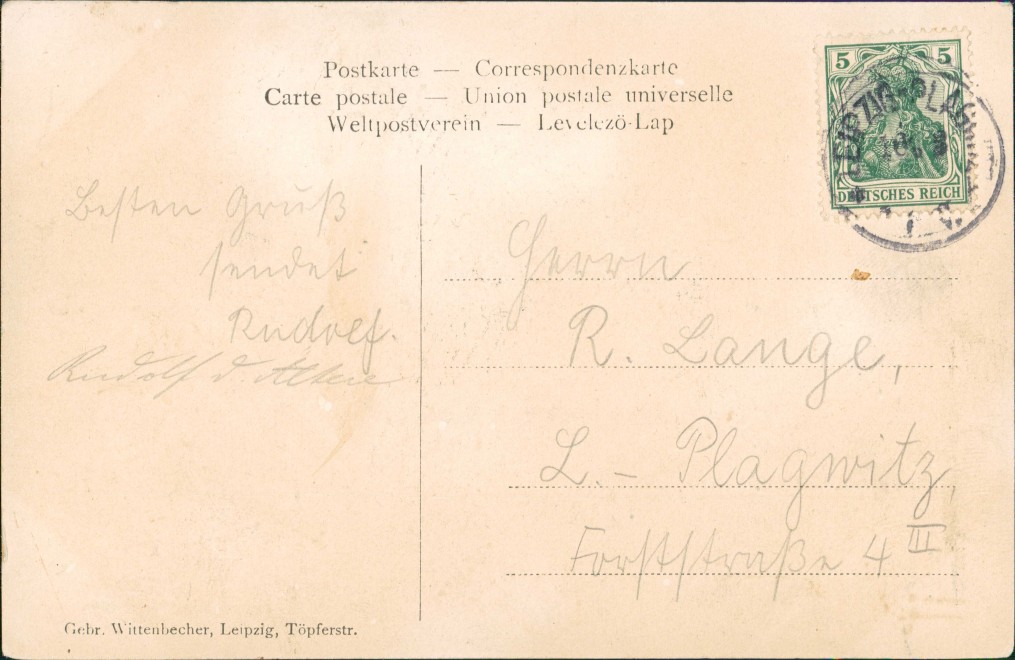 Postkarte — Correspondenzkarte
Carte postale — Union postale universelle
Weltpostverein — Levelező-Lap
5 5
DEUTSCHES REICH
LEIPZIG-PLAGWITZ
Besten Gruß
sendet
Rudolf.
Rudolf d. Alten
Herrn
R. Lange,
L. – Plagwitz,
Forststraße 4 III
Gebr. Wittenbecher, Leipzig, Töpferstr.